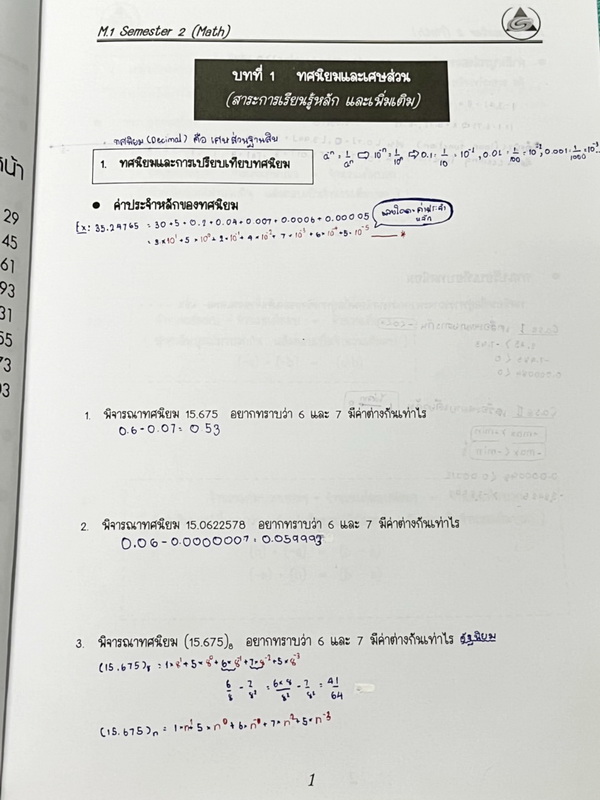 M.1 Semester 2 (Math)
บทที่ 1 ทศนิยมและเศษส่วน
(สาระการเรียนรู้หลัก และเพิ่มเติม)
ทศนิยม (Decimal) คือ เศษส่วนฐานสิบ
a⁻ⁿ = 1/aⁿ ⇨ 10⁻ⁿ = 1/10ⁿ ⇨ 0.1 = 1/10 = 10⁻¹, 0.01 = 1/100 = 10⁻², 0.001 = 1/1000 = 10⁻³
1. ทศนิยมและการเปรียบเทียบทศนิยม
● ค่าประจำหลักของทศนิยม
Ex: 35.24765 = 30+5+0.2+0.04+0.007+0.0006+0.00005
= 3×10¹+5×10⁰+2×10⁻¹+4×10⁻²+7×10⁻³+6×10⁻⁴+5×10⁻⁵
หน้า
29
45
61
93
31
55
73
93
1. พิจารณาทศนิยม 15.675 อยากทราบว่า 6 และ 7 มีค่าต่างกันเท่าไร
0.6-0.07= 0.53
2. พิจารณาทศนิยม 15.0622578 อยากทราบว่า 6 และ 7 มีค่าต่างกันเท่าไร
0.06-0.0000007 = 0.059993
3. พิจารณาทศนิยม (15.675)₈ อยากทราบว่า 6 และ 7 มีค่าต่างกันเท่าไร
(15.675)₈ = 1×8¹+5×8⁰+6×8⁻¹+7×8⁻²+5×8⁻³
6/8 - 7/8² = 6×8/8² - 7/8² = 41/64
(15.675)ₙ = 1×n¹+5×n⁰+6×n⁻¹+7×n⁻²+5×n⁻³
1